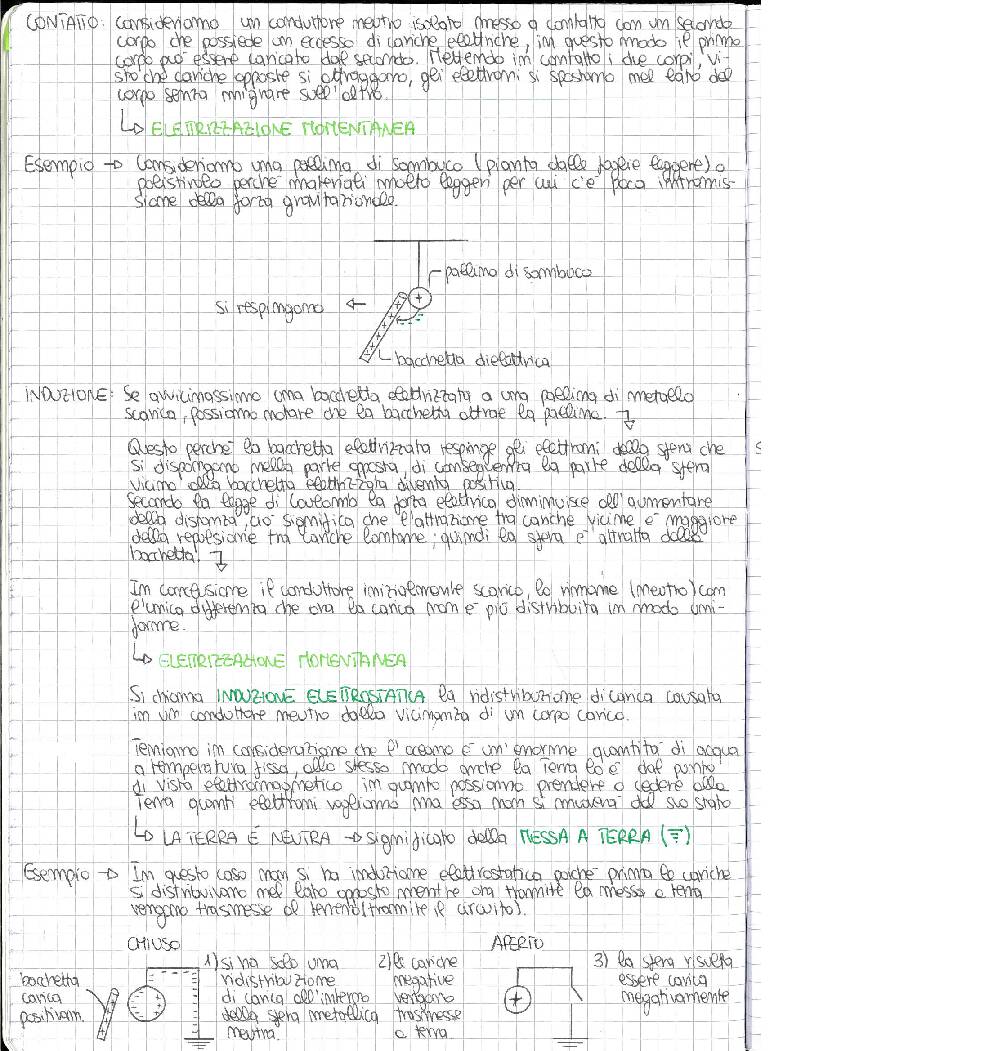 CONTATTO: Consideriamo un conduttore neutro isolato messo a contatto con un secondo
corpo che possiede un eccesso di cariche elettriche, in questo modo il primo
corpo può essere caricato dal secondo. Mettendo in contatto i due corpi, vi-
sto che cariche opposte si attraggono, gli elettroni si spostano nel lato del
corpo senza migrare sull'altro.
↳ ELETTRIZZAZIONE MOMENTANEA
Esempio → Consideriamo una pallina di sambuco (pianta dalle foglie leggere) o
polistirolo perché materiali molto leggeri per cui c'è poca intromis-
sione della forza gravitazionale.
pallina di sambuco
si respingono ←
bacchetta dielettrica
INDUZIONE: Se avvicinassimo una bacchetta elettrizzata a una pallina di metallo
scarica, possiamo notare che la bacchetta attrae la pallina.
Questo perché la bacchetta elettrizzata respinge gli elettroni della sfera che
si dispongono nella parte opposta, di conseguenza la parte della sfera
vicino alla bacchetta elettrizzata diventa positiva.
Secondo la legge di Coulomb la forza elettrica diminuisce all'aumentare
della distanza, ciò significa che l'attrazione tra cariche vicine è maggiore
della repulsione tra cariche lontane; quindi la sfera è attratta dalla
bacchetta!
In conclusione il conduttore inizialmente scarico, lo rimane (neutro) con
l'unica differenza che ora la carica non è più distribuita in modo uni-
forme.
↳ ELETTRIZZAZIONE MOMENTANEA
Si chiama INDUZIONE ELETTROSTATICA la ridistribuzione di carica causata
in un conduttore neutro dalla vicinanza di un corpo carico.
Teniamo in considerazione che l'oceano è un'enorme quantità di acqua
a temperatura fissa, allo stesso modo anche la Terra lo è dal punto
di vista elettromagnetico in quanto possiamo prendere o cedere alla
Terra quanti elettroni vogliamo ma essa non si muoverà dal suo stato
↳ LA TERRA È NEUTRA → significato della MESSA A TERRA (⏚)
Esempio → In questo caso non si ha induzione elettrostatica poiché prima le cariche
si distribuivano nel lato opposto mentre ora tramite la messa a terra
vengono trasmesse al terreno (tramite il circuito).
CHIUSO
bacchetta
carica
positivam.
1) si ha solo una
ridistribuzione
di carica all'interno
della sfera metallica
neutra.
2) le cariche
negative
vengono
trasmesse
a terra
APERTO
3) la sfera risulta
essere carica
negativamente